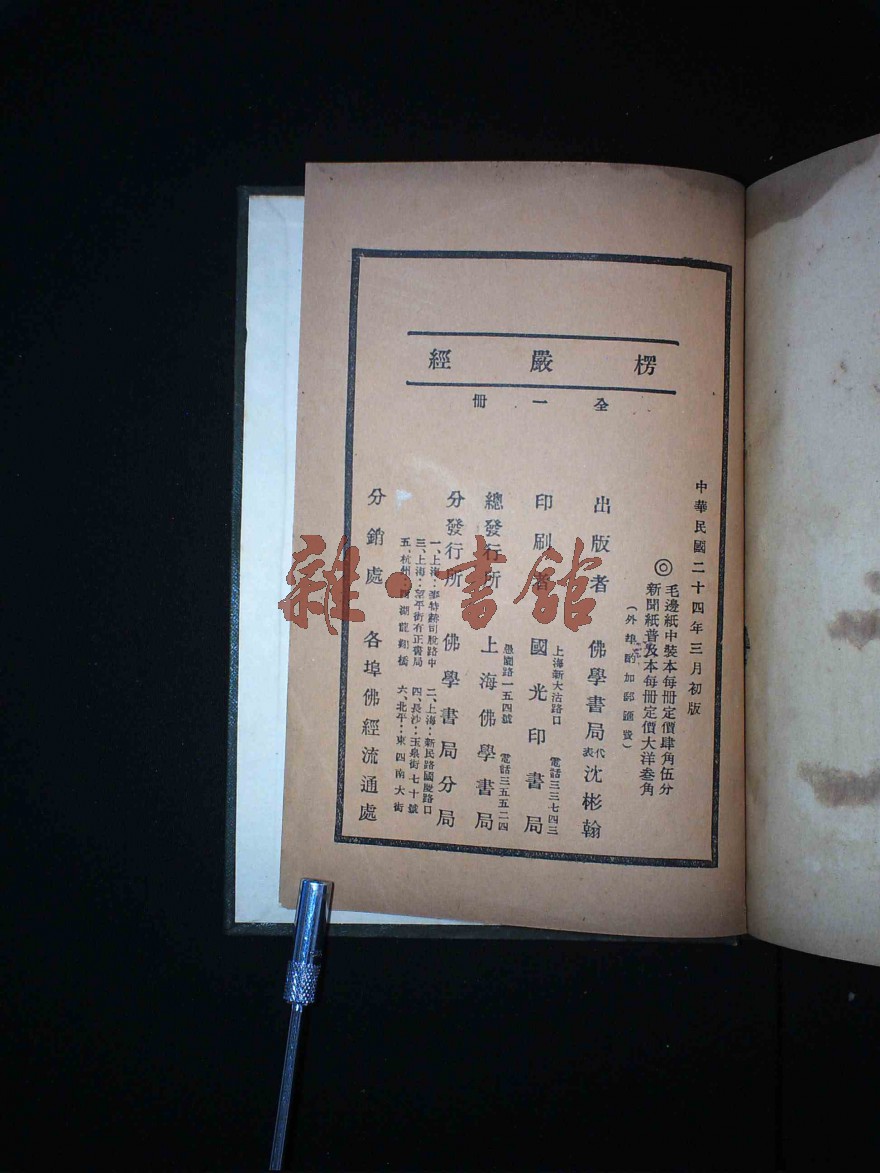 楞嚴經
全一冊
中華民國二十四年三月初版
◎毛邊紙中裝本每冊定價肆角伍分
新聞紙普及本每冊定價大洋叁角
(外埠酌加郵匯費)
出版者 佛學書局代表沈彬翰
印刷者 國光印書局
上海新大沽路口 電話三三七四三
總發行所 上海佛學書局
愚園路一五四號 電話三五五二四
分發行所 佛學書局分局
一、上海：麥特赫司脫路中 二、上海：新民路國慶路口
三、上海：望平街有正書局 四、長沙：玉泉街七十號
五、杭州：西湖龍翔橋 六、北平：東四南大街
分銷處 各埠佛經流通處
雜·書館